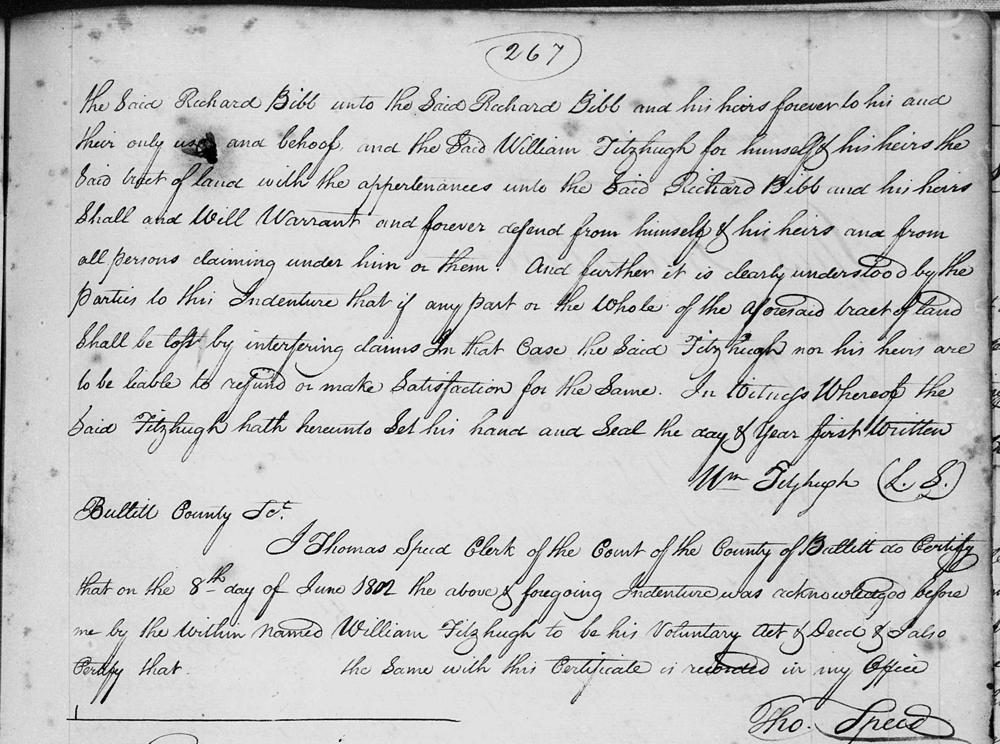 267
the Said Richard Bibb unto the Said Richard Bibb and his heirs forever to his and
their only use and behoof, and the Said William Fitzhugh for himself & his heirs the
Said tract of land with the appertenances unto the Said Richard Bibb and his heirs
Shall and Will Warrant and forever defend from himself & his heirs and from
all persons claiming under him or them. And further it is clearly understood by the
Parties to this Indenture that if any part or the Whole of the aforesaid tract of land
Shall be lost by interfering claims In that Case the Said Fitzhugh nor his heirs are
to be liable to refund or make Satisfaction for the Same. In Witness Whereof the
Said Fitzhugh hath hereunto Set his hand and Seal the day & Year first Written
Wm Fitzhugh (L. S.)
Bullitt County Sct.
I Thomas Speed Clerk of the Court of the County of Bullett do Certify
that on the 8th day of June 1802 the above & foregoing Indenture was acknowledged before
me by the within named William Fitzhugh to be his Voluntary Act & Deed & I also
Certify that the Same with this Certificate is recorded in my Office
Tho. Speed